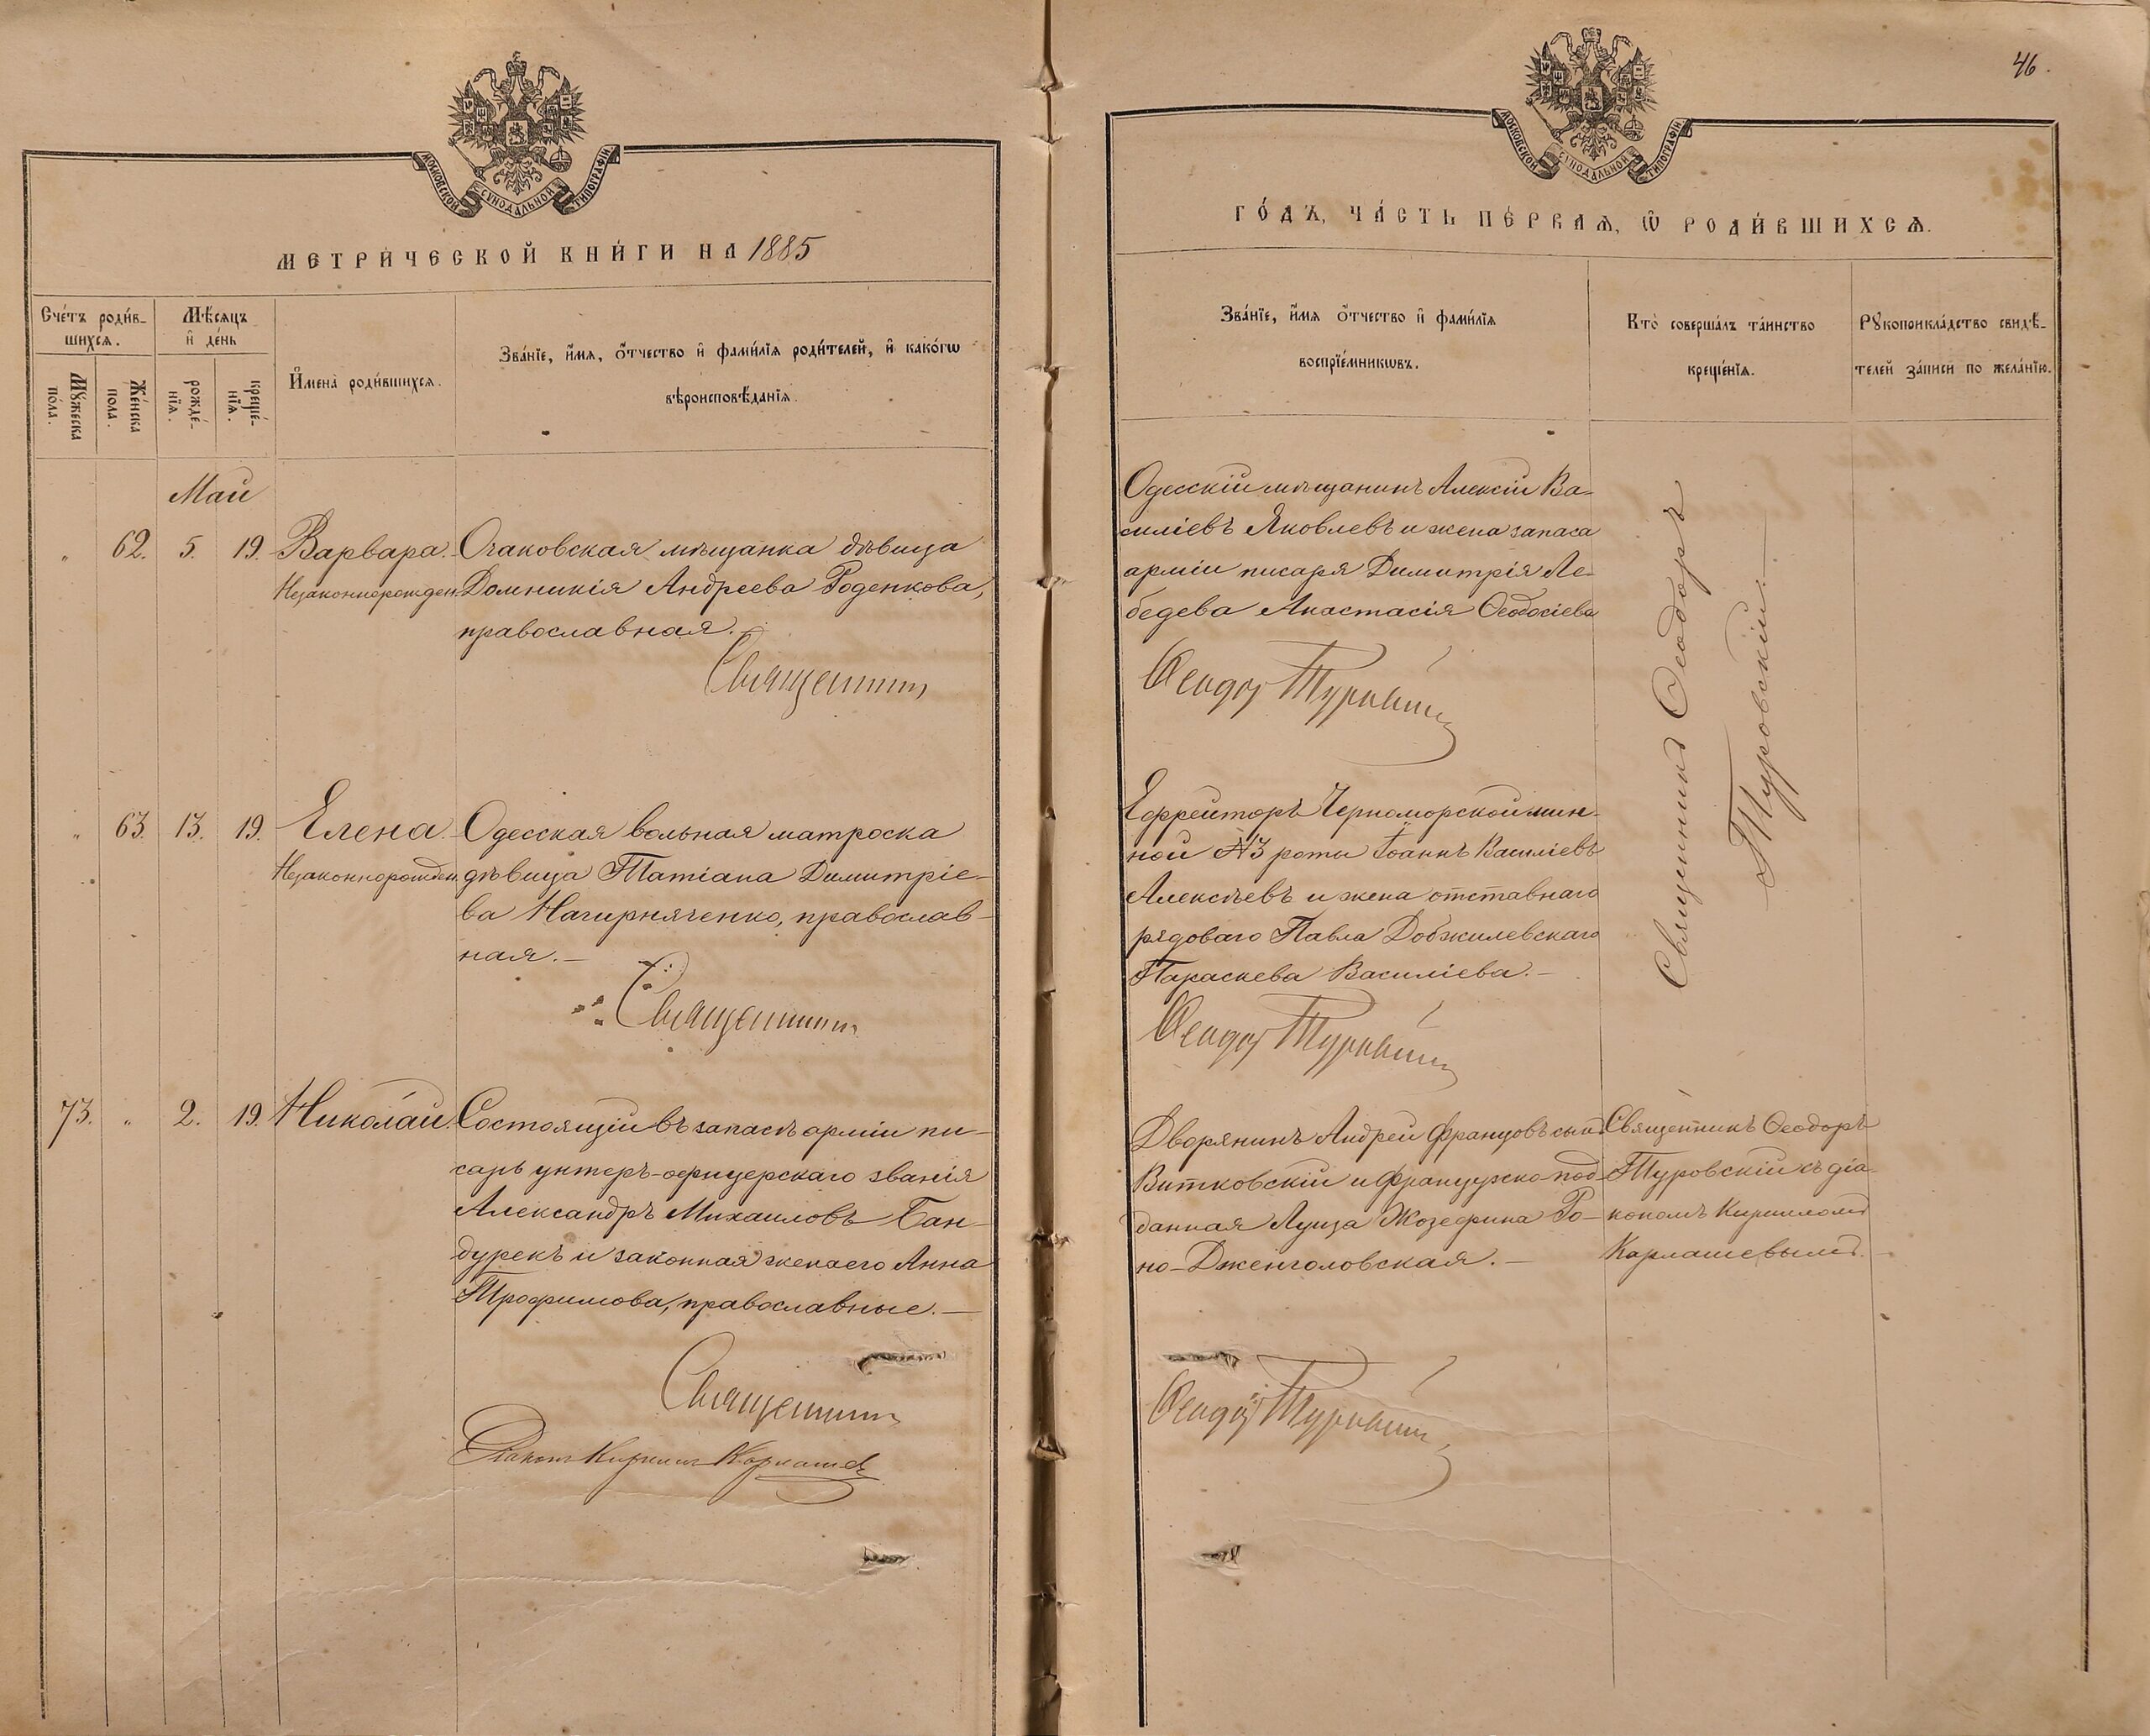 МОСКОВСКОЙ СѴНОДАЛЬНОЙ ТИПОГРАФІИ
МЕТРИ́ЧЕСКОЙ КНИ́ГИ НА 1885
Сче́тъ роди́в-
шихсѧ.
Мꙋ́жеска
по́ла.
Же́нска
пола.
Мѣ́сѧцъ
и҆ де́нь
рожде́-
нїѧ.
креще́-
нїѧ.
И҆мена̀ роди́вшихсѧ.
Зва́нїе, и҆́мѧ, ѻ҆́тчество и҆ фами́лїѧ роди́телей, и҆ како́гѡ
вѣроисповѣ́данїѧ.
Май
" 62. 5. 19. Варвара. Очаковская мѣщанка дѣвица
Незаконнорожден. Домникія Андреева Роденкова,
православная.
Священникъ
" 63. 13. 19. Елена. Одесская вольная матроска
Незаконнорожден. дѣвица Татіана Димитріе-
ва Нагирняченко, православ-
ная.—
Священникъ
73. " 2. 19. Николай. Состоящій въ запасѣ арміи пи-
сарь унтеръ-офицерскаго званія
Александръ Михаиловъ Бан-
дурекъ и законная жена его Анна
Трофимова, православные.—
Священникъ
Діаконъ Кириллъ Карлашев
46.
МОСКОВСКОЙ СѴНОДАЛЬНОЙ ТИПОГРАФІИ
ГО́ДЪ, ЧА́СТЬ ПЕ́РВАѦ, Ѡ҆ РОДИ́ВШИХСѦ.
Зва́нїе, и҆́мѧ ѻ҆́тчество и҆ фами́лїѧ
воспрїе́мникѡвъ.
Кто̀ соверша́лъ та́инство
креще́нїѧ.
Рꙋкоприкла́дство свидѣ́-
телей за́писи по жела́нїю.
Одесскій мѣщанинъ Алексій Ва-
силіевъ Яковлевъ и жена запаса
арміи писаря Димитрія Ле-
бедева Анастасія Ѳеодосіева
Ѳеодоръ Туровскій
Священникъ Ѳеодоръ
Туровскій.—
Ефрейторъ Черноморской мин-
ной №3 роты Іоаннъ Василіевъ
Алексѣевъ и жена отставнаго
рядоваго Павла Добжилевскаго
Параскева Василіева.—
Ѳеодоръ Туровскій
Дворянинъ Андрей Францовъ сынъ
Витковскій и французско-под-
данная Луиза Жозефина Ро-
но-Дженголовская.—
Священникъ Ѳеодоръ
Туровскій съ діа-
кономъ Кирилломъ
Карлашевымъ.—
Ѳеодоръ Туровскій